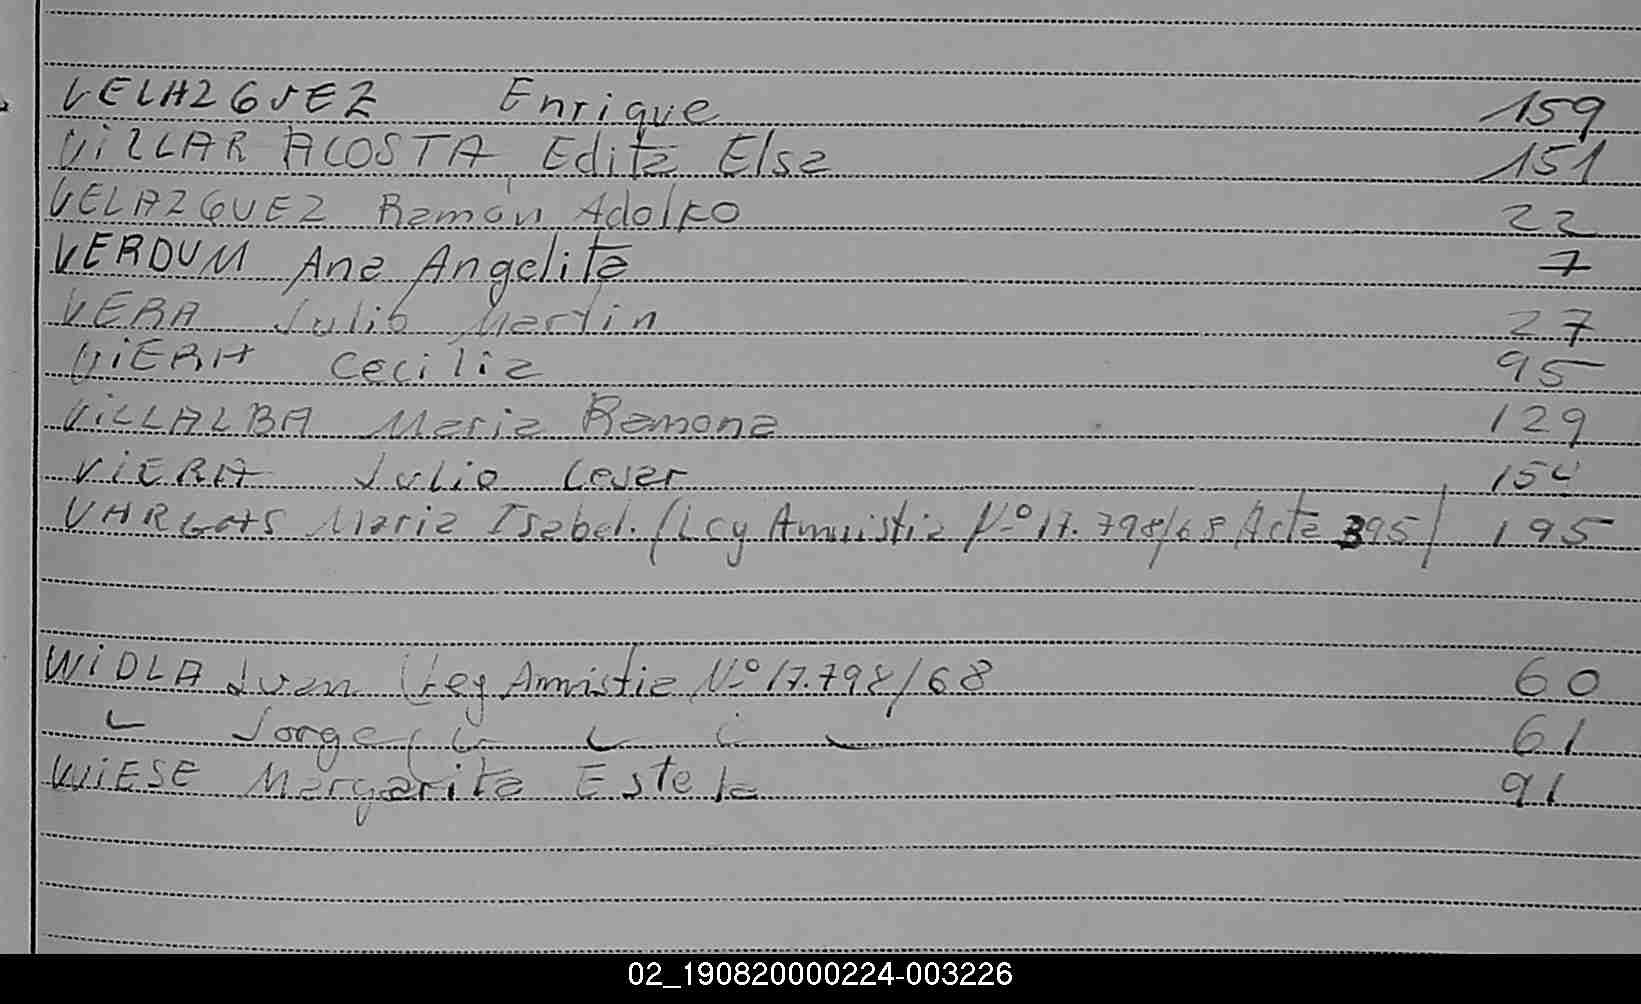 VELAZQUEZ Enrique 159
VILLAR ACOSTA Edita Elsa 151
VELAZQUEZ Ramón Adolfo 22
VERDUM Ana Angelita 7
VERA Julio Martin 27
VIERA Cecilia 95
VILLALBA Maria Ramona 129
VIERA Julio Cesar 154
VARGAS Maria Isabel. (Ley Amnistia Nº 17.798/68 Acta 395) 195
WIDLA Juan (Ley Amnistia Nº 17.798/68 60
" Jorge ( " " " " 61
WIESE Margarita Estela 91
02_190820000224-003226